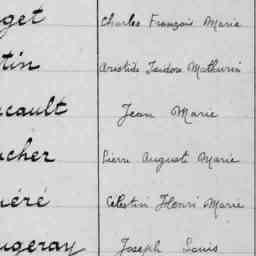 get Charles François Marie
tin Aristide Isidore Mathurin
cault Jean Marie
cher Pierre Auguste Marie
uéré Célestin Henri Marie
ugeray Joseph Louis